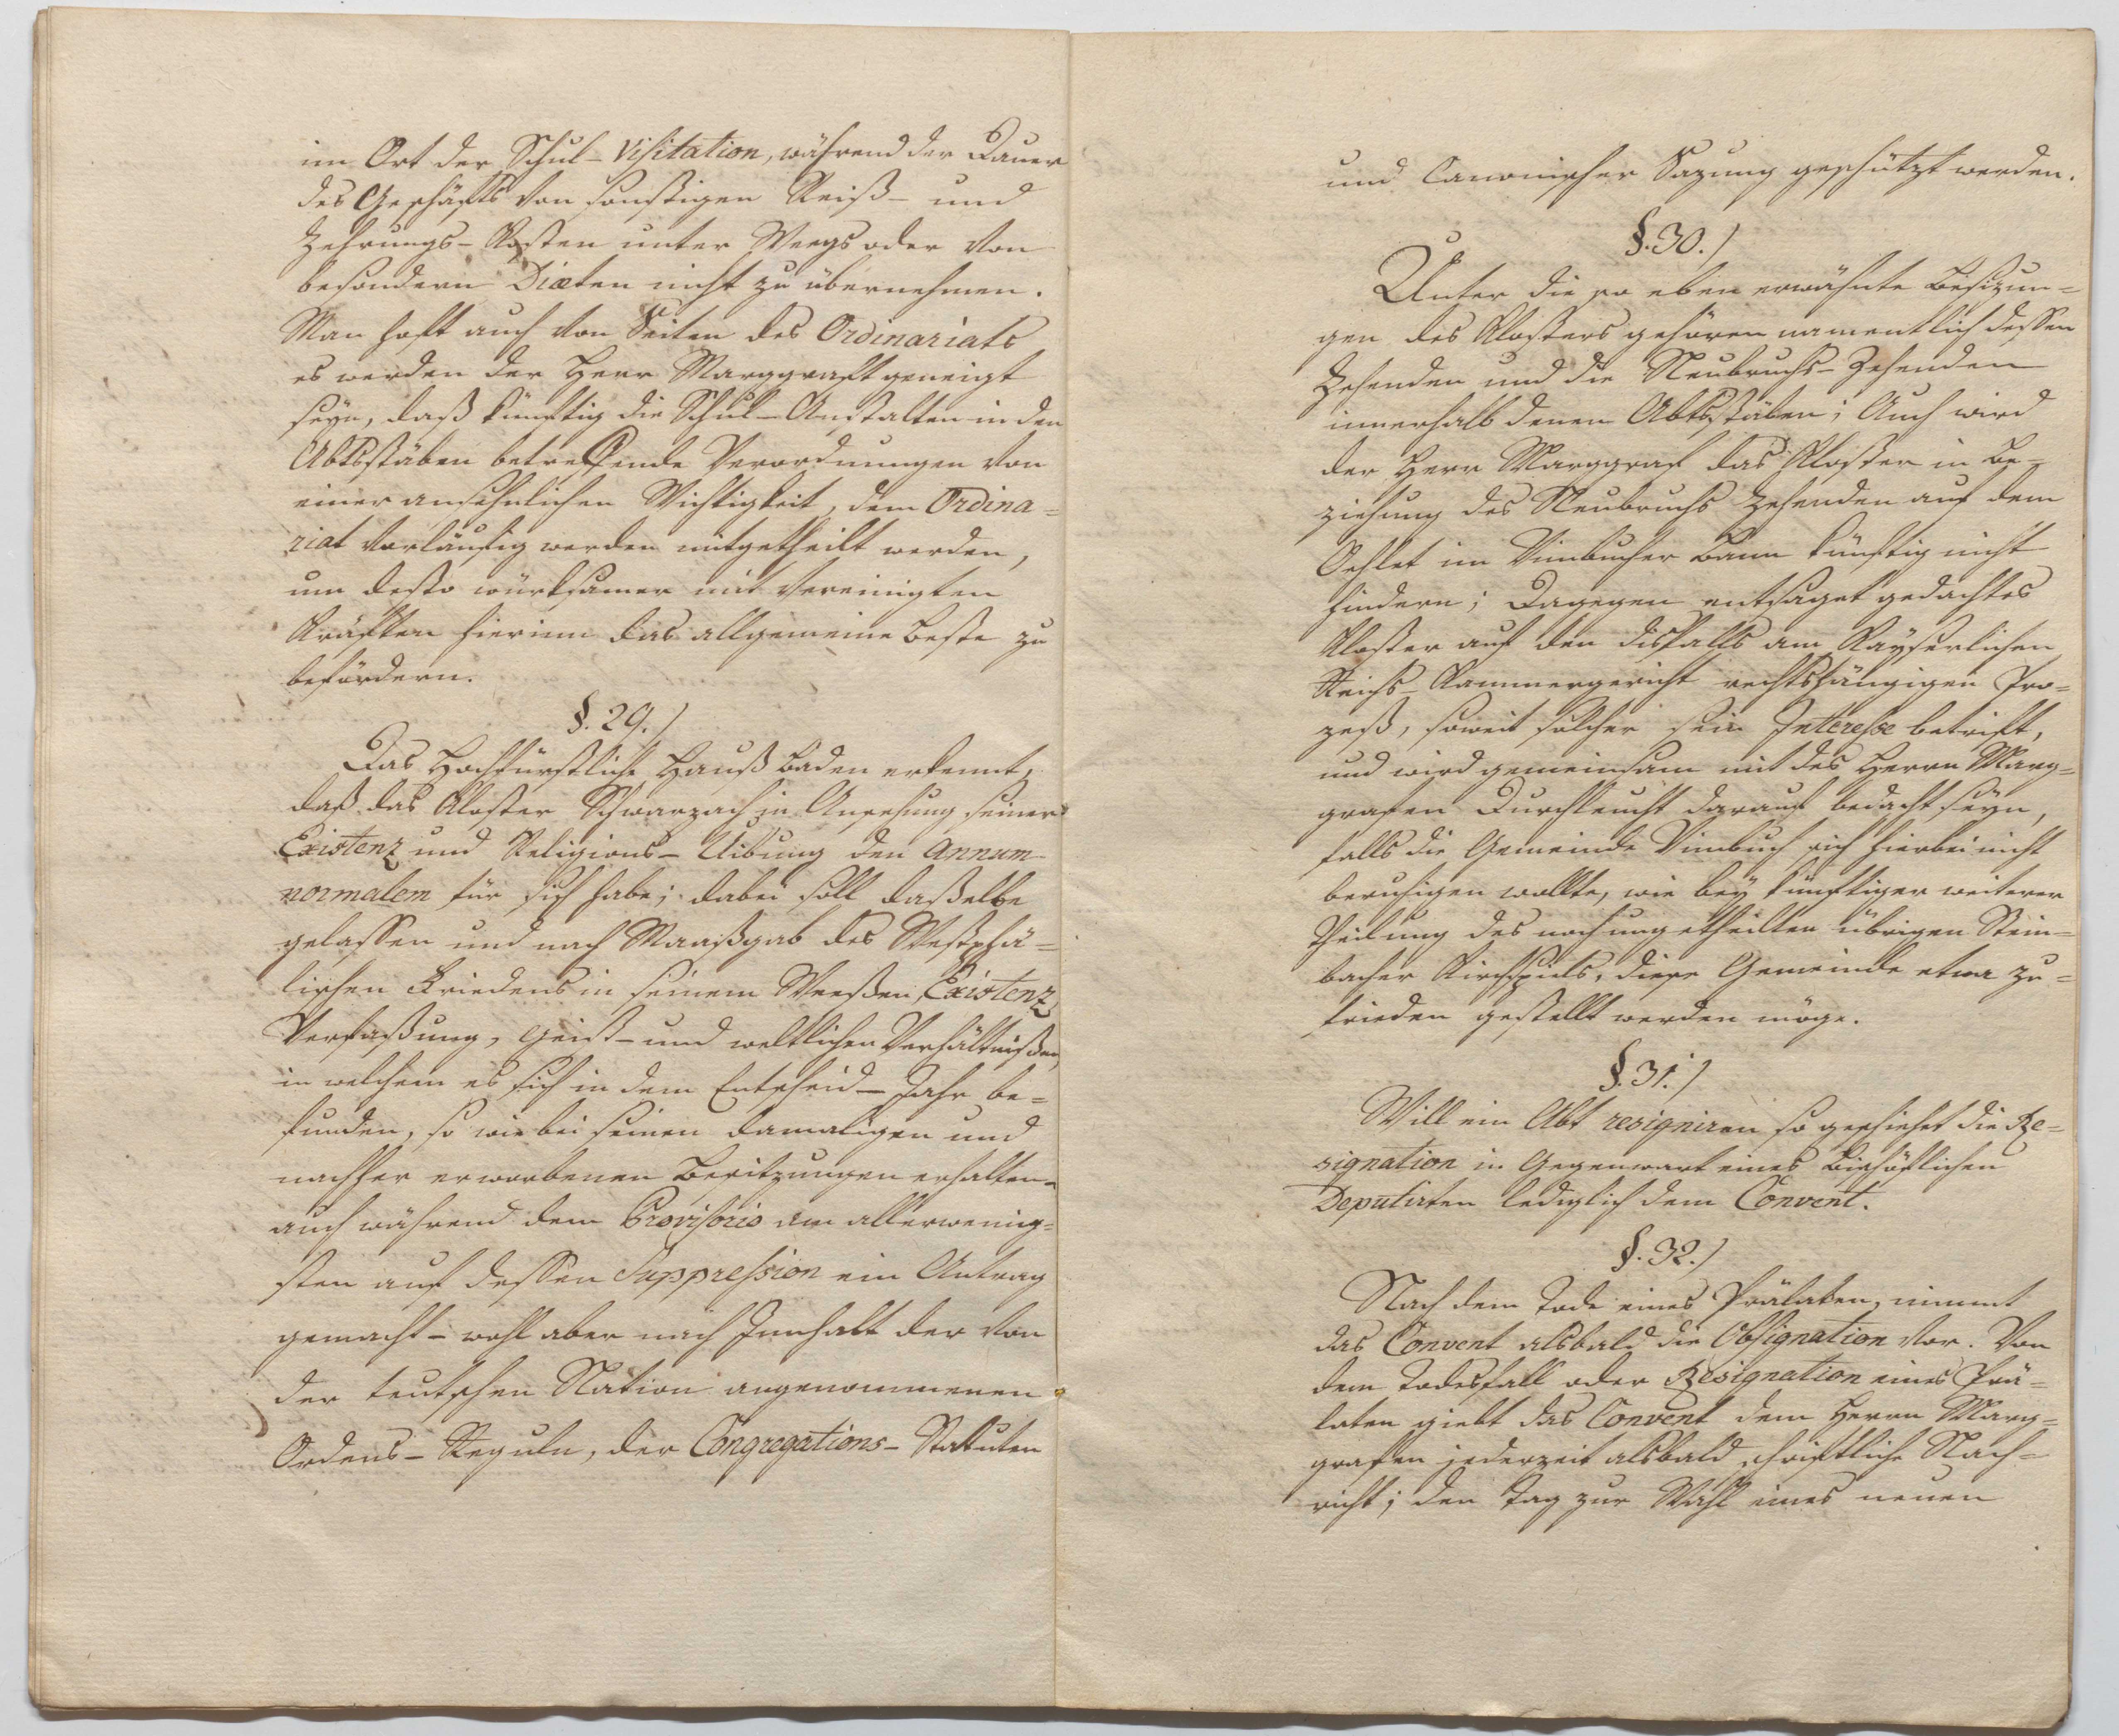 im Ort der Schul-Visitation, während der Dauer
des Geschäfts von sonstigen Reiß- und
Zehrungs-Kosten unter Weegs oder von
besondern Diæten nicht zu übernehmen.
Man hoft auch von Seiten des Ordinariats
es werden der Herr Marggraf geneigt
seyn, daß künftig die Schul-Anstalten in den
Abtsstäben betreffende Verordnungen von
einer ansehnlichen Wichtigkeit, dem Ordina=
riat vorläufig werden mitgetheilt werden,
um desto würksamer mit vereinigten
Kräften hierinn das allgemeine Beste zu
befördern.
§. 29.)
Das Hochfürstliche Hauß Baden erkennt,
daß das Kloster Schwarzach in Ansehung seiner
Existenz und Religions-Uibung den Annum
normalem für sich habe; dabei soll daßelbe
gelassen und nach Maaßgab des Westphä=
lischen Friedens in seinem Weeßen, Existenz
Verfaßung, Geist- und weltlichen Verhältnißen
in welchem es sich in dem Entscheid-Jahr be=
funden, so wie bei seinen damaligen und
nachher erworbenen Besitzungen erhalten-
auch während dem Provisorio am allerwenig=
sten auf dessen Suppression ein Antrag
gemacht- wohl aber nach Innhalt der von
der teutschen Nation angenommenen
Ordens-Reguln, der Congregations-Statuten
und Canonischer Sazung geschützt werden.
§. 30.)
Unter die so eben erwähnte Besizun=
gen des Klosters gehören namentlich dessen
Zehenden und die Neubruchs-Zehenden
innerhalb denen Abtsstäben; Auch wird
der Herr Marggraf das Kloster in Be=
ziehung des Neubruchs Zehenden auf dem
im Vimbucher Bann künftig nicht
hindern; Dagegen entsaget gedachtes
Kloster auf den disfalls am Kayserlichen
Reichs-Kammergericht rechtshängigen Pro=
zeß, soweit solcher sein Interesse betrift,
und wird gemeinsam mit des Herrn Marg=
grafen Durchleucht darauf bedacht seyn,
falls die Gemeinde Vimbuch sich hierbei nicht
beruhigen wollte, wie bey künftiger weiterer
Theilung des noch ungetheilten übrigen Stein=
bacher Kirchspiels, diese Gemeinde etwa zu=
frieden gestellt werden möge.
§. 31.)
Will ein Abt resigniren so geschiehet die Re=
signation in Gegenwart eines Bischöflichen
Deputirten lediglich dem Convent.
§. 32.)
Nach dem Tode eines Prälaten, nimmt
das Convent alsbald die Obsignation vor. Von
dem Todesfall oder Resignation eines Prä=
laten giebt das Convent dem Herrn Marg=
grafen jederzeit alsbald schriftliche Nach=
richt; den Tag zur Wahl eines neuen